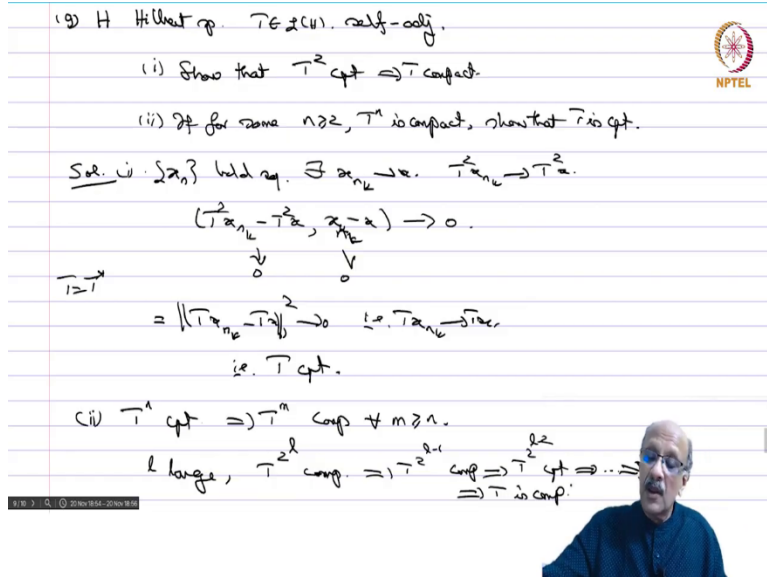 (9) H Hilbert sp. T ∈ L(H). self-adj.
NPTEL
(i) Show that T² cpt ⇒ T compact.
(ii) If for some n≥2, Tⁿ is compact, show that T is cpt.
Sol. (i) {xₙ} bdd seq. ∃ x_{n_k} ⇀ x. T²x_{n_k} → T²x.
(T²x_{n_k} - T²x, x_{n_k} - x) → 0.
↓ ↓
0 0
T=T*
= ||Tx_{n_k} - Tx||² → 0 i.e. Tx_{n_k} → Tx.
i.e. T cpt.
(ii) Tⁿ cpt ⇒ Tᵐ comp ∀ m ≥ n.
l large, T^{2^l} comp. ⇒ T^{2^{l-1}} comp ⇒ T^{2^{l-2}} cpt ⇒ ... ⇒
⇒ T is comp.
9/10 20 Nov 18:54 - 20 Nov 18:56